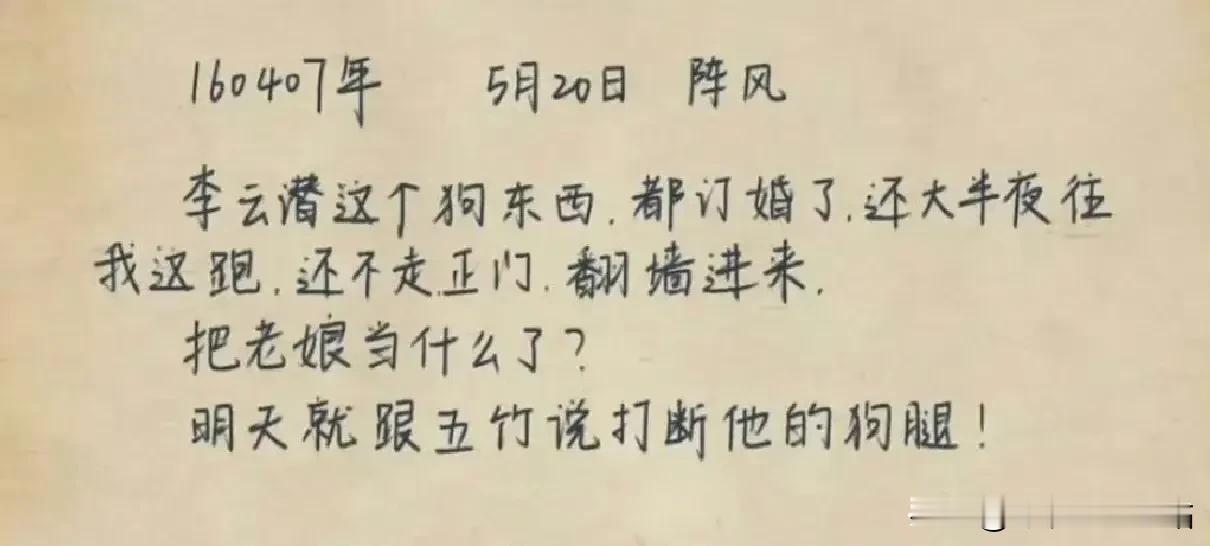 160407年 5月20日 阵风
李云潜这个狗东西.都订婚了.还大半夜往
我这跑.还不走正门.翻墙进来.
把老娘当什么了?
明天就跟五竹说打断他的狗腿!